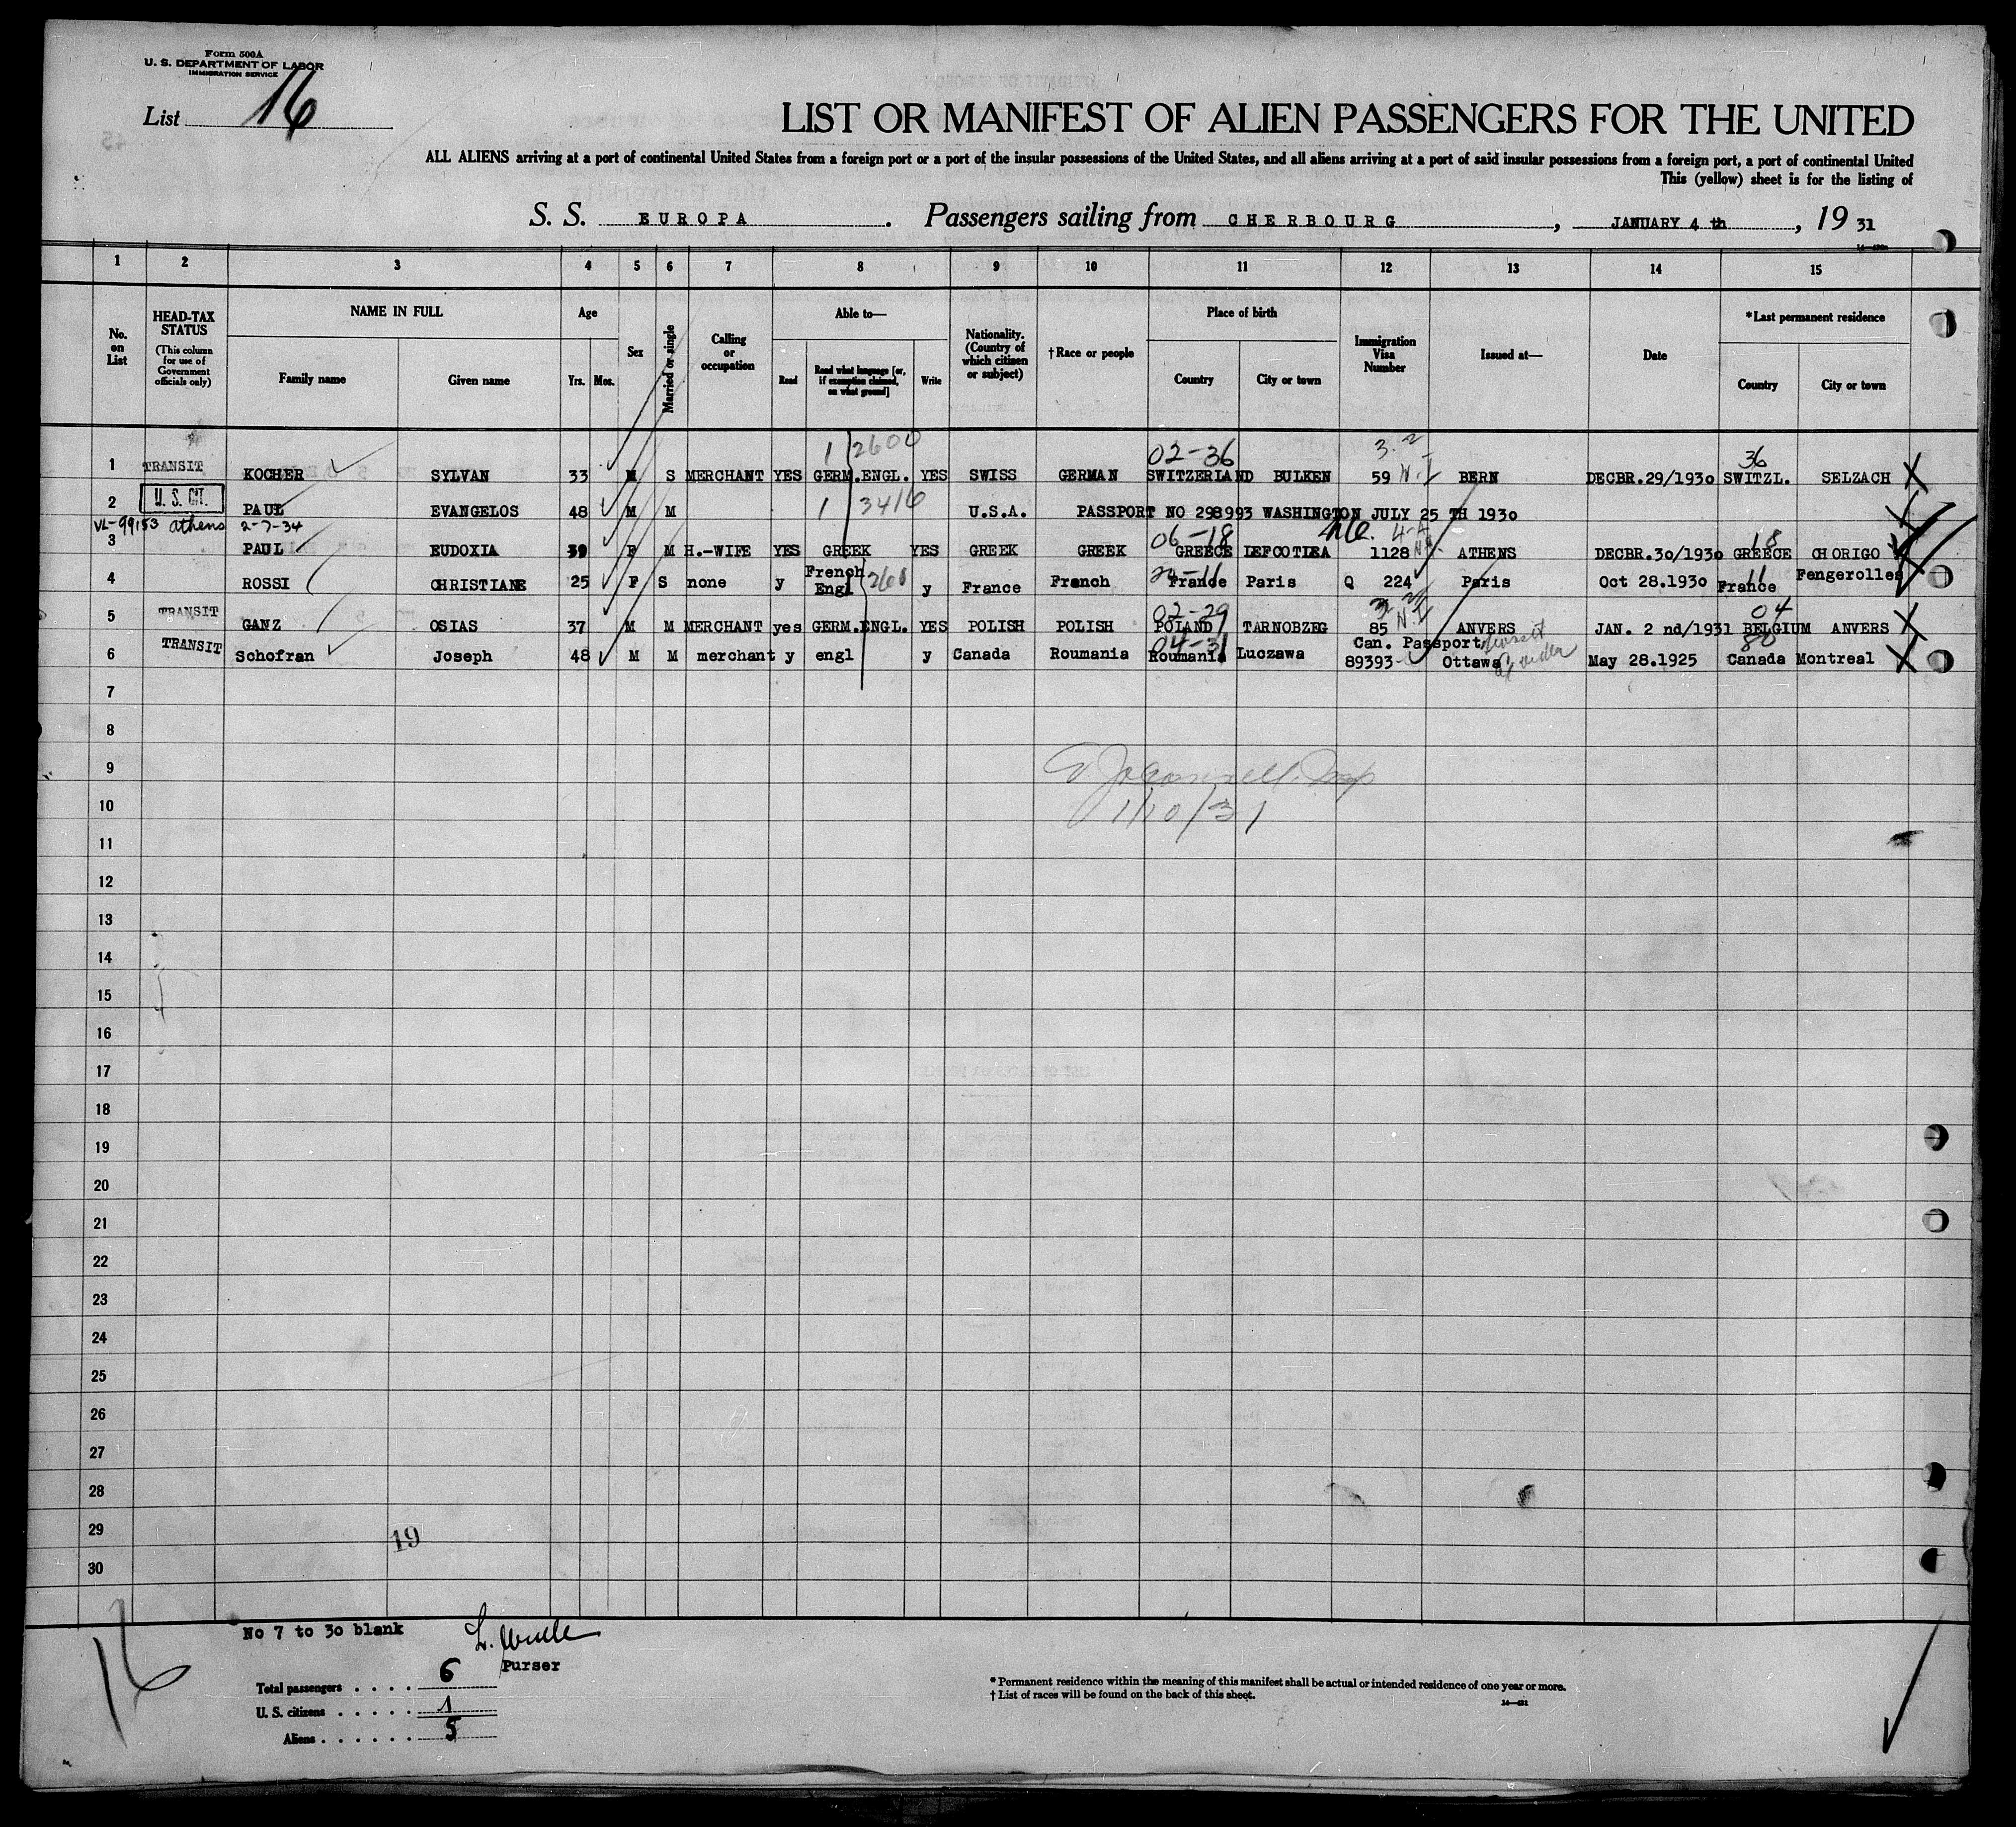 Form 500A
U. S. DEPARTMENT OF LABOR
IMMIGRATION SERVICE
List 16
LIST OR MANIFEST OF ALIEN PASSENGERS FOR THE UNITED
ALL ALIENS arriving at a port of continental United States from a foreign port or a port of the insular possessions of the United States, and all aliens arriving at a port of said insular possessions from a foreign port, a port of continental United
This (yellow) sheet is for the listing of
S. S. EUROPA. Passengers sailing from CHERBOURG, JANUARY 4 th, 19 31
1 2 3 4 5 6 7 8 9 10 11 12 13 14 15
No. on List
HEAD-TAX STATUS
(This column for use of Government officials only)
NAME IN FULL
Family name Given name
Age
Yrs. Mos.
Sex
Married or single
Calling or occupation
Able to—
Read Read what language [or, if exemption claimed, on what ground] Write
Nationality. (Country of which citizen or subject)
† Race or people
Place of birth
Country City or town
Immigration Visa Number
Issued at—
Date
*Last permanent residence
Country City or town
1 2600 02-36 3.2 36
1 TRANSIT KOCHER SYLVAN 33 M S MERCHANT YES GERM.ENGL. YES SWISS GERMAN SWITZERLAND BULKEN 59 N.I BERN DECBR.29/1930 SWITZL. SELZACH X
2 U. S. CIT. PAUL EVANGELOS 48 M M 1 3416 U.S.A. PASSPORT NO 298993 WASHINGTON JULY 25 TH 1930
VL-99153 athens 2-7-34 06-18 4-A 18
3 PAUL EUDOXIA 39 F M H.-WIFE YES GREEK YES GREEK GREEK GREECE LEFCOTIEA 1128 ATHENS DECBR.30/1930 GREECE CHORIGO
4 ROSSI CHRISTIANE 25 F S none y French Engl 2601 y France French France Paris Q 224 Paris Oct 28.1930 11 France Fengerolles
02-29 04
5 TRANSIT GANZ OSIAS 37 M M MERCHANT yes GERM.ENGL. YES POLISH POLISH POLAND TARNOBZEG 85 N.I ANVERS JAN. 2 nd/1931 BELGIUM ANVERS X
04-31 Can. Passport 80
6 TRANSIT Schofran Joseph 48 M M merchant y engl y Canada Roumania Roumania Luczawa 89393 Ottawa May 28.1925 Canada Montreal X
7
8
9
10
1/10/31
11
12
13
14
15
16
17
18
19
20
21
22
23
24
25
26
27
28
29
19
30
No 7 to 30 blank
Purser
16
Total passengers . . . . 6
U. S. citizens . . . . . 1
Aliens . . . . . . 5
* Permanent residence within the meaning of this manifest shall be actual or intended residence of one year or more.
† List of races will be found on the back of this sheet.